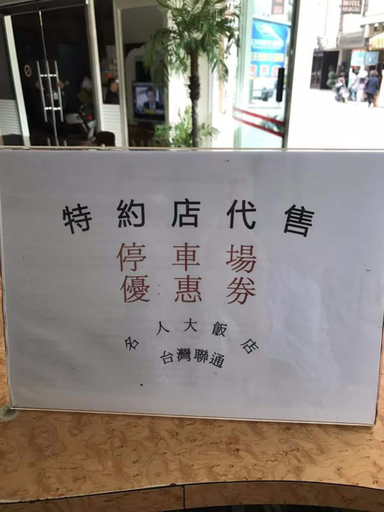 HOTEL
特約店代售
停車場
優惠券
名人大飯店
台灣聯通